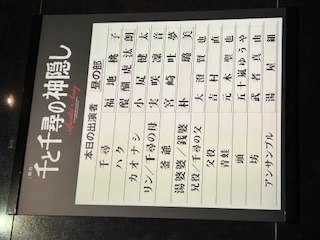 舞台
千と千尋の神隠し
Spirited Away
本日の出演者 昼の部
千尋 福地桃子
ハク 醍醐虎汰朗
カオナシ 小㞍健太
リン/千尋の母 実咲凜音
釜爺 宮崎吐夢
湯婆婆/銭婆 朴璐美
兄役/千尋の父 大澄賢也
父役 吉村直
青蛙 元木聖也
頭 五十嵐ゆうや
坊 武者真由
アンサンブル 湯屋組